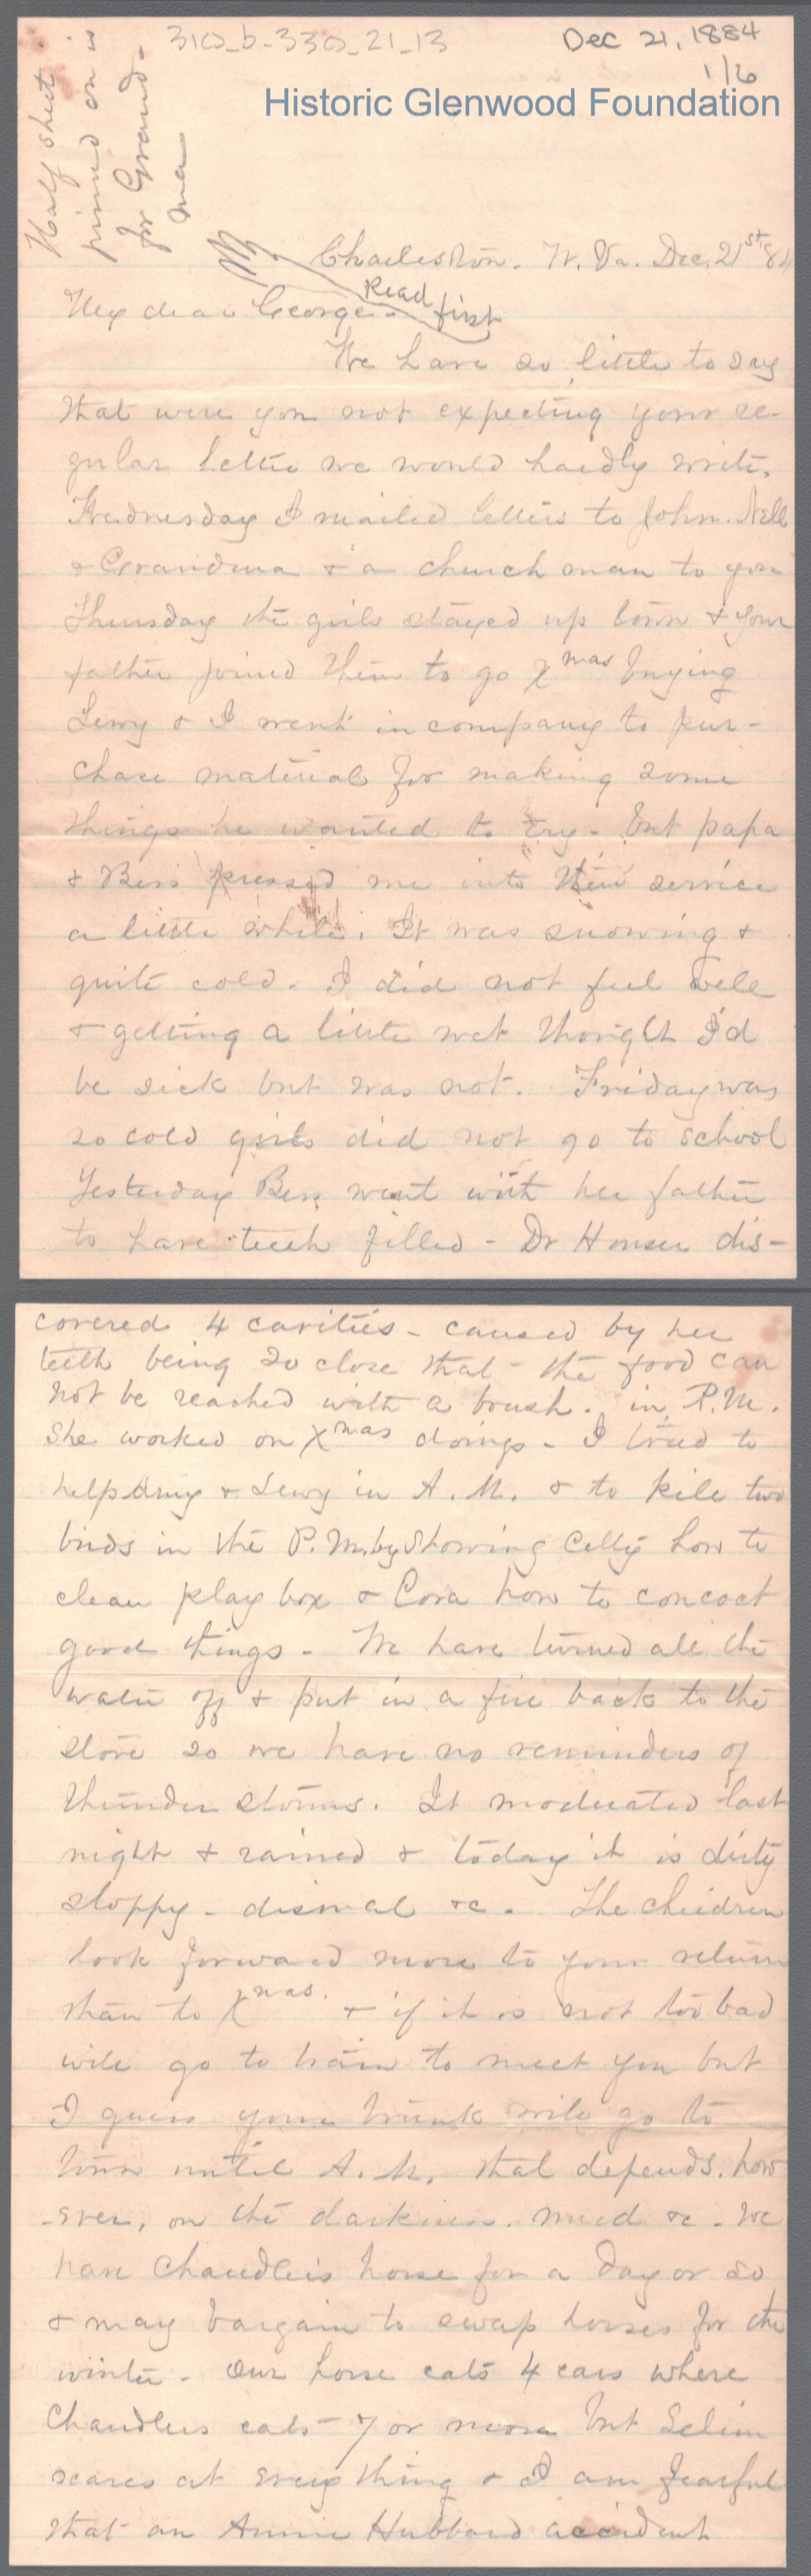 310_b-330_21_13
Dec 21, 1884
1/6
Historic Glenwood Foundation
Half sheet
pinned on is
for Grand-
ma
Charleston. W. Va. Dec. 21st 84
My dear George- Read first
We have so little to say
that were you not expecting your re-
gular letter we would hardly write.
Wednesday I mailed letters to John. Nell
& Grandma & a church man to you
Thursday the girls stayed up town & your
father joined them to go Xmas buying
Lewy & I went in company to pur-
chase material for making some
things he wanted to try - but papa
& Bess pressed me into their service
a little while. It was snowing &
quite cold. I did not feel well
& getting a little wet thought I'd
be sick but was not. Friday was
so cold girls did not go to school
Yesterday Bess went with her father
to have teeth filled - Dr Houser dis-
covered 4 cavities - caused by her
teeth being so close that the food can
not be reached with a brush. in P.M.
she worked on Xmas doings - I tried to
help Amy & Lewy in A.M. & to kill two
birds in the P.M. by showing Celly how to
clean play box & Cora how to concoct
good things - We have turned all the
water off & put in a fire back to the
stove so we have no reminders of
thunder storms. It moderated last
night & rained & today it is dirty
sloppy - dismal &c. The children
look forward more to your return
than to Xmas. & if it is not too bad
will go to train to meet you but
I guess your trunk will go to
town until A.M. that depends, how
-ever, on the darkness. mud &c - We
have Chandler's horse for a day or so
& may bargain to swap horses for the
winter - Our horse eats 4 ears where
Chandlers eats 7 or more but Selim
scares at every thing & I am fearful
that an Annie Hubbard accident